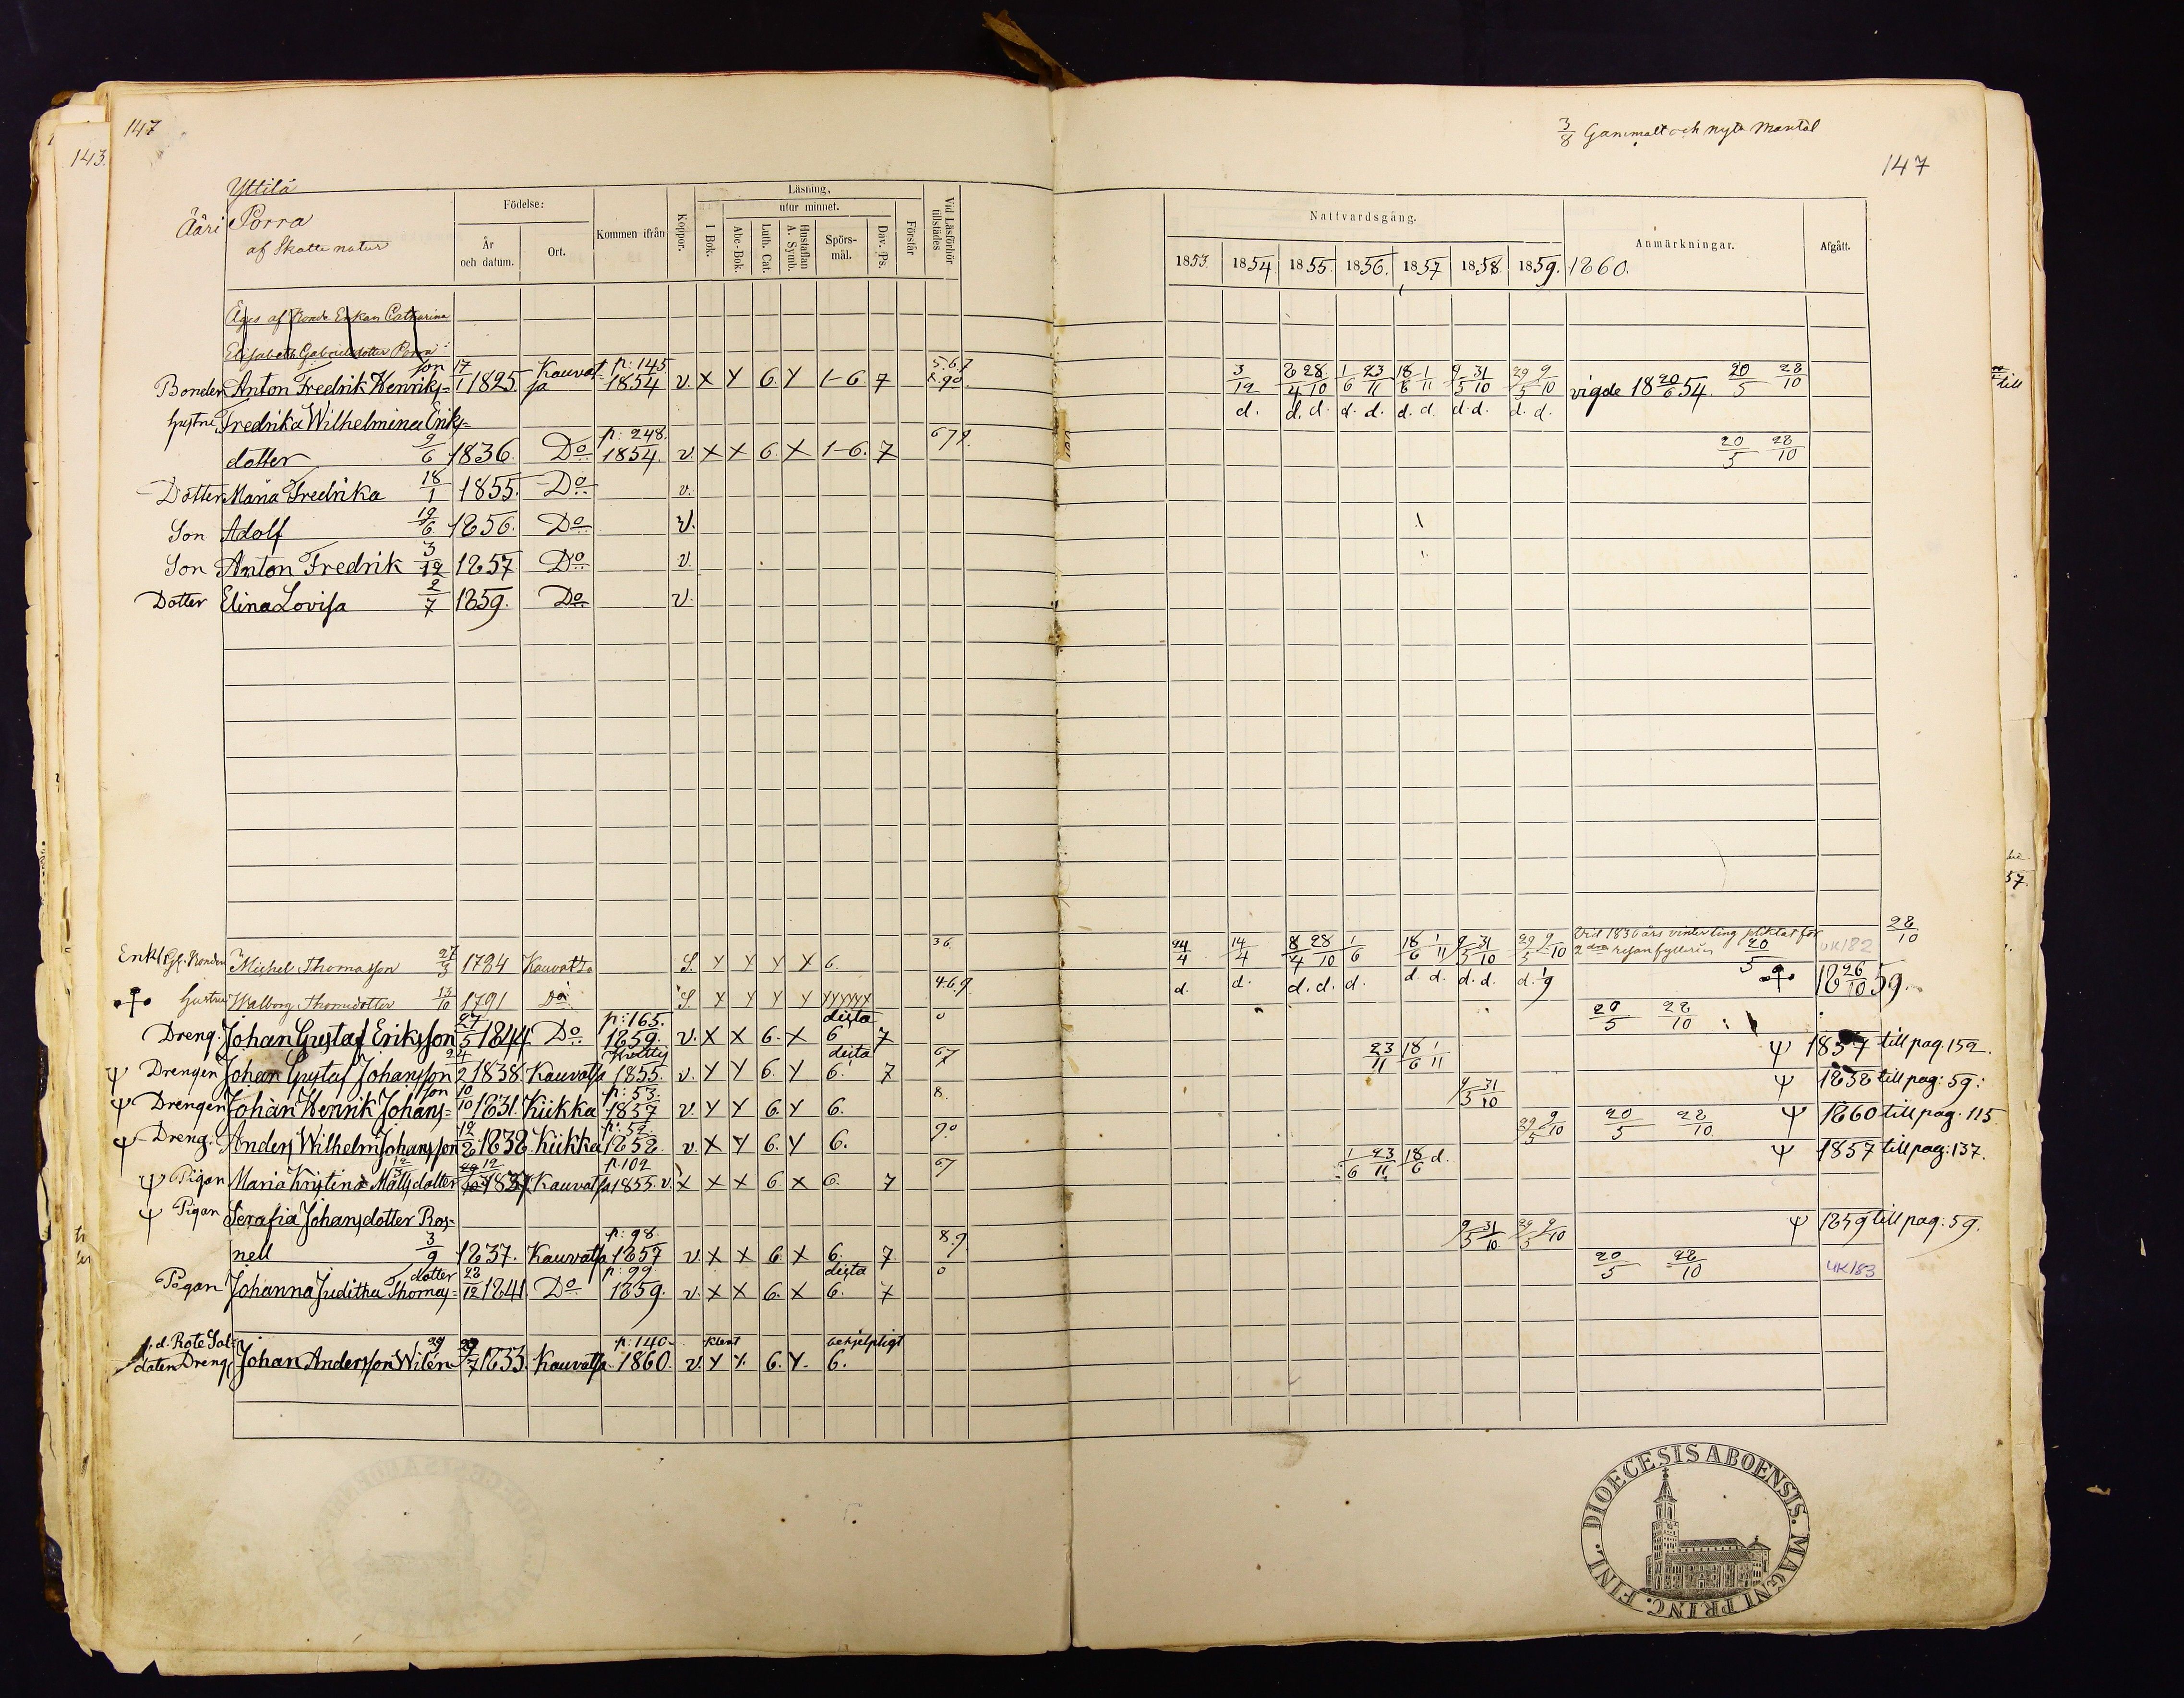 147
143.
3/8 Gammalt och nytt Mantal
147
Yttilä
Ääri Porra
af Skatte natur
Födelse:
År och datum.
Ort.
Kommen ifrån
Koppor.
Läsning,
utur minnet.
I Bok.
Abc-Bok.
Luth. Cat.
Hustaflan A. Symb.
Spörs-mål.
Dav. Ps.
Förstår
Vid Läsförhör tillstädes
Nattvardsgång.
1853. 1854. 1855. 1856. 1857 1858. 1859. 1860.
Anmärkningar.
Afgått.
Äges af Bonde Enkan Catharina
Elisabeth Gabrielsdotter Porra
Bonden Anton Fredrik Henriks= son 17/1 1825. Kauvatsa p: 145 1854 v. X Y 6. Y 1–6 7 5.6.7 8.90. 3/12 8/4 28/10 1/6 23/11 18/6 1/11 9/5 31/10 29/5 9/10 vigde 18 20/6 54. 20/5 28/10
d. d. d. d. d. d. d. d. d. d. d.
Hustru Fredrika Wilhelmina Eriks=
dotter 9/6 1836. Do p: 248. 1854. v. X X 6. X 1–6. 7 679. 20/5 28/10
Dotter Maria Fredrika 18/1 1855. Do v.
Son Adolf 19/6 1856. Do v.
Son Anton Fredrik 3/12 1857 Do v.
Dotter Elina Lovisa 2/7 1859. Do v.
Enkl. Gl. Bonden Michel Thomasson 27/3 1784 Kauvatsa S. Y Y Y X 6. 36. 24/4 14/4 8/4 28/10 1/6 18/6 1/11 9/5 31/10 29/5 9/10 Vid 1836 års vinterting pliktat för 2 dra resan fylleri 20/5 UK182 28/10
Hustru Walborg Thomsdotter 13/10 1791 Do S. X Y Y Y YYYYYY 4.6.9. d. d. d. d. d. d. d. d. d. d. 18 26/10 59.
Dreng. Johan Gustaf Eriksson 27/5 1844 Do p: 165. 1859. v. X X 6. X dessa 6 7 0 20/5 28/10
Drengen Johan Gustaf Johansson 24/2 1838. Kauvatsa 1855. v. Y Y 6 Y 6. 7 67 23/11 18/6 1/11 1857 till pag. 152.
Drengen Johan Henrik Johans= son 10/10 1831. Kiikka p: 53. 1857 v. Y Y 6. Y 6. 8. 9/5 31/10 1858 till pag: 59.
Dreng. Anders Wilhelm Johansson 12/2 1838 Kiikka p: 52. 1858. v. X Y 6. Y 6. 90 29/5 9/10 20/5 28/10. 1860 till pag. 115
Pigan Maria Kristina Matsdotter 1837 Kauvatsa p. 102 1855 v. X X X 6 X 6. 7 67 1/6 23/11 18/6 d. 1857 till pag: 137.
Pigan Serafia Johansdotter Ros=
nell 3/9 1837. Kauvatsa p: 98. 1857 v. X X 6. X 6. 7 8.9 9/5 31/10. 29/5 9/10 1859 till pag: 59.
Pigan Johanna Juditha Thomas= dotter 28/12 1841 Do p: 99 1859. v. X X 6. X 6. 7 0 20/5 28/10 UK183
f. d. Rote Sol=
daten Dreng Johan Andersson Wilen 29/7 1833. Kauvatsa p: 140. 1860. v. Y Y. 6. Y. behjelpligt 6.
DIOECESIS ABOENSIS. MAGNI PRINC. FINL.